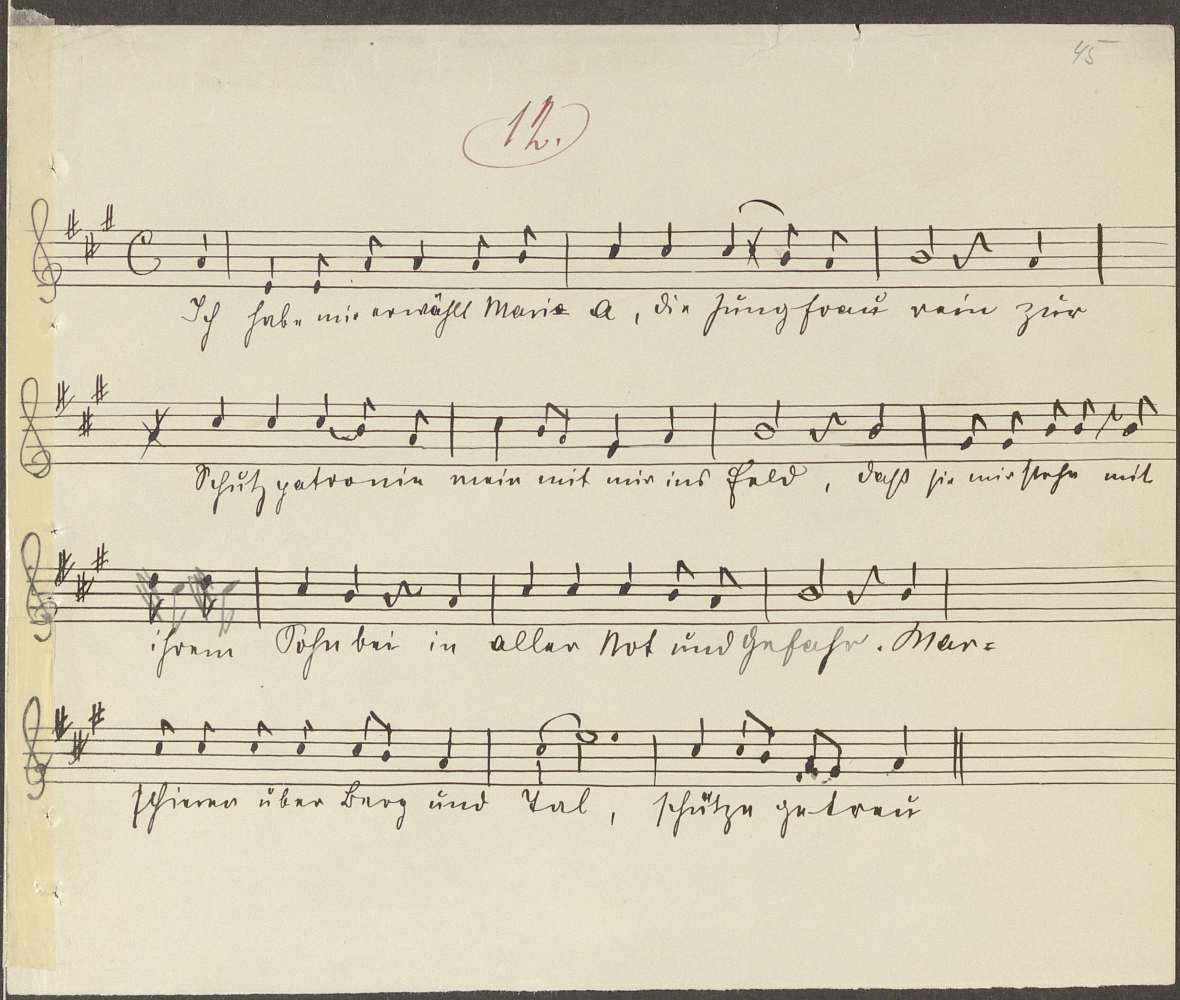 45
12.
Ich habe mir erwählt Maria A, die Jungfrau rein zur
Schutzpatronin mein mit mir ins Feld, daß sie mir stehe mit
ihrem Sohn bei in aller Not und Gefahr. Mar=
schieren über Berg und Tal, schütze getreu